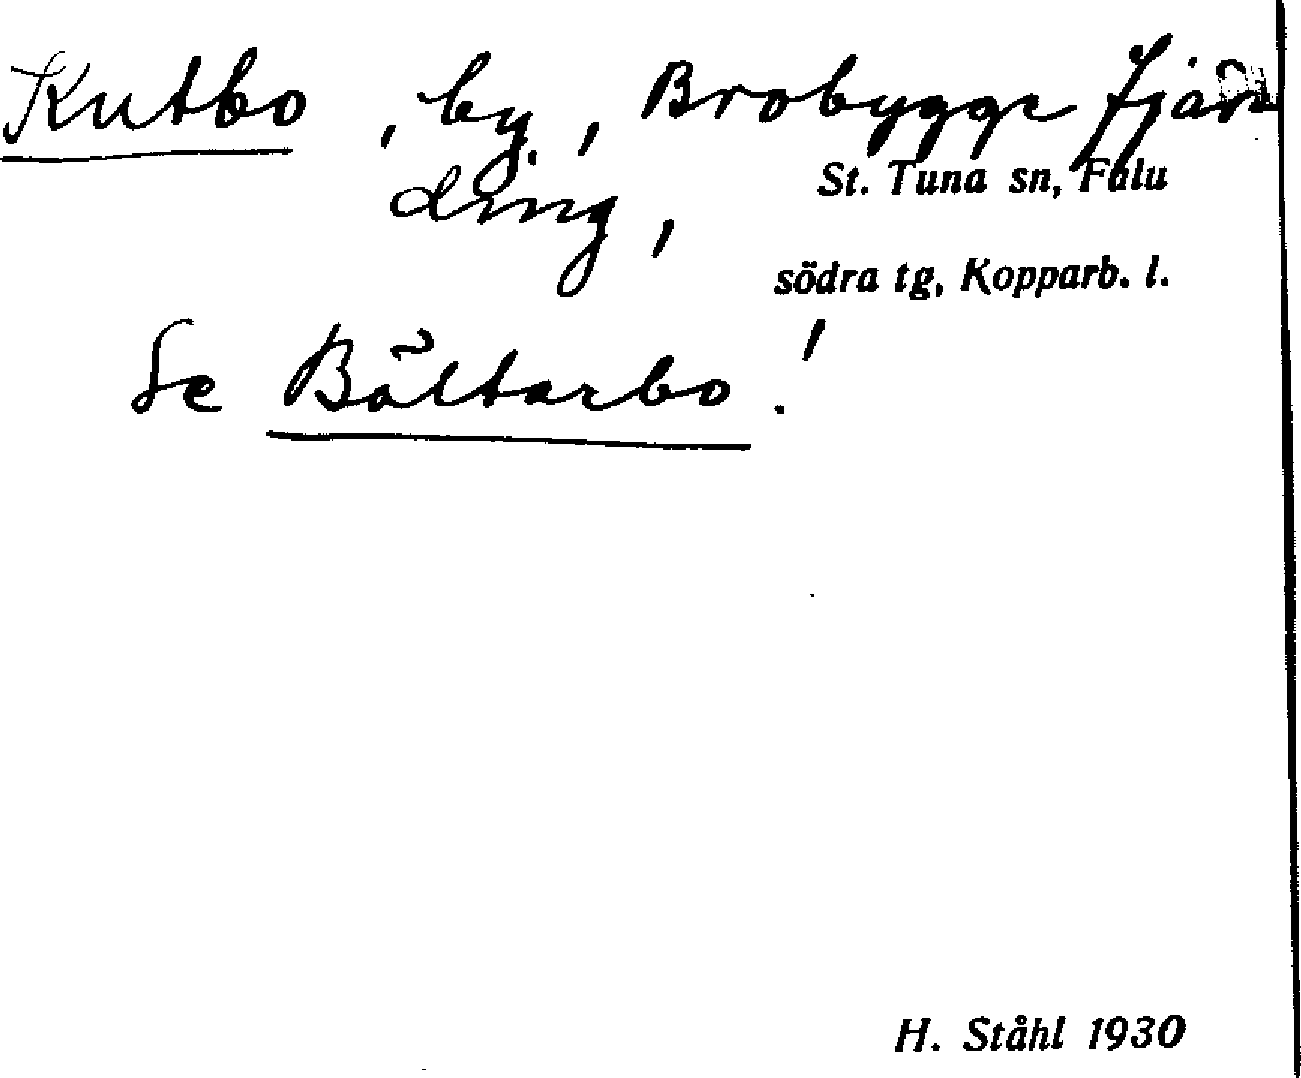 Kutbo, by, Brobygge fjär
ding,
St. Tuna sn, Falu
södra tg, Kopparb. l.
Se Båltarbo!
H. Ståhl 1930